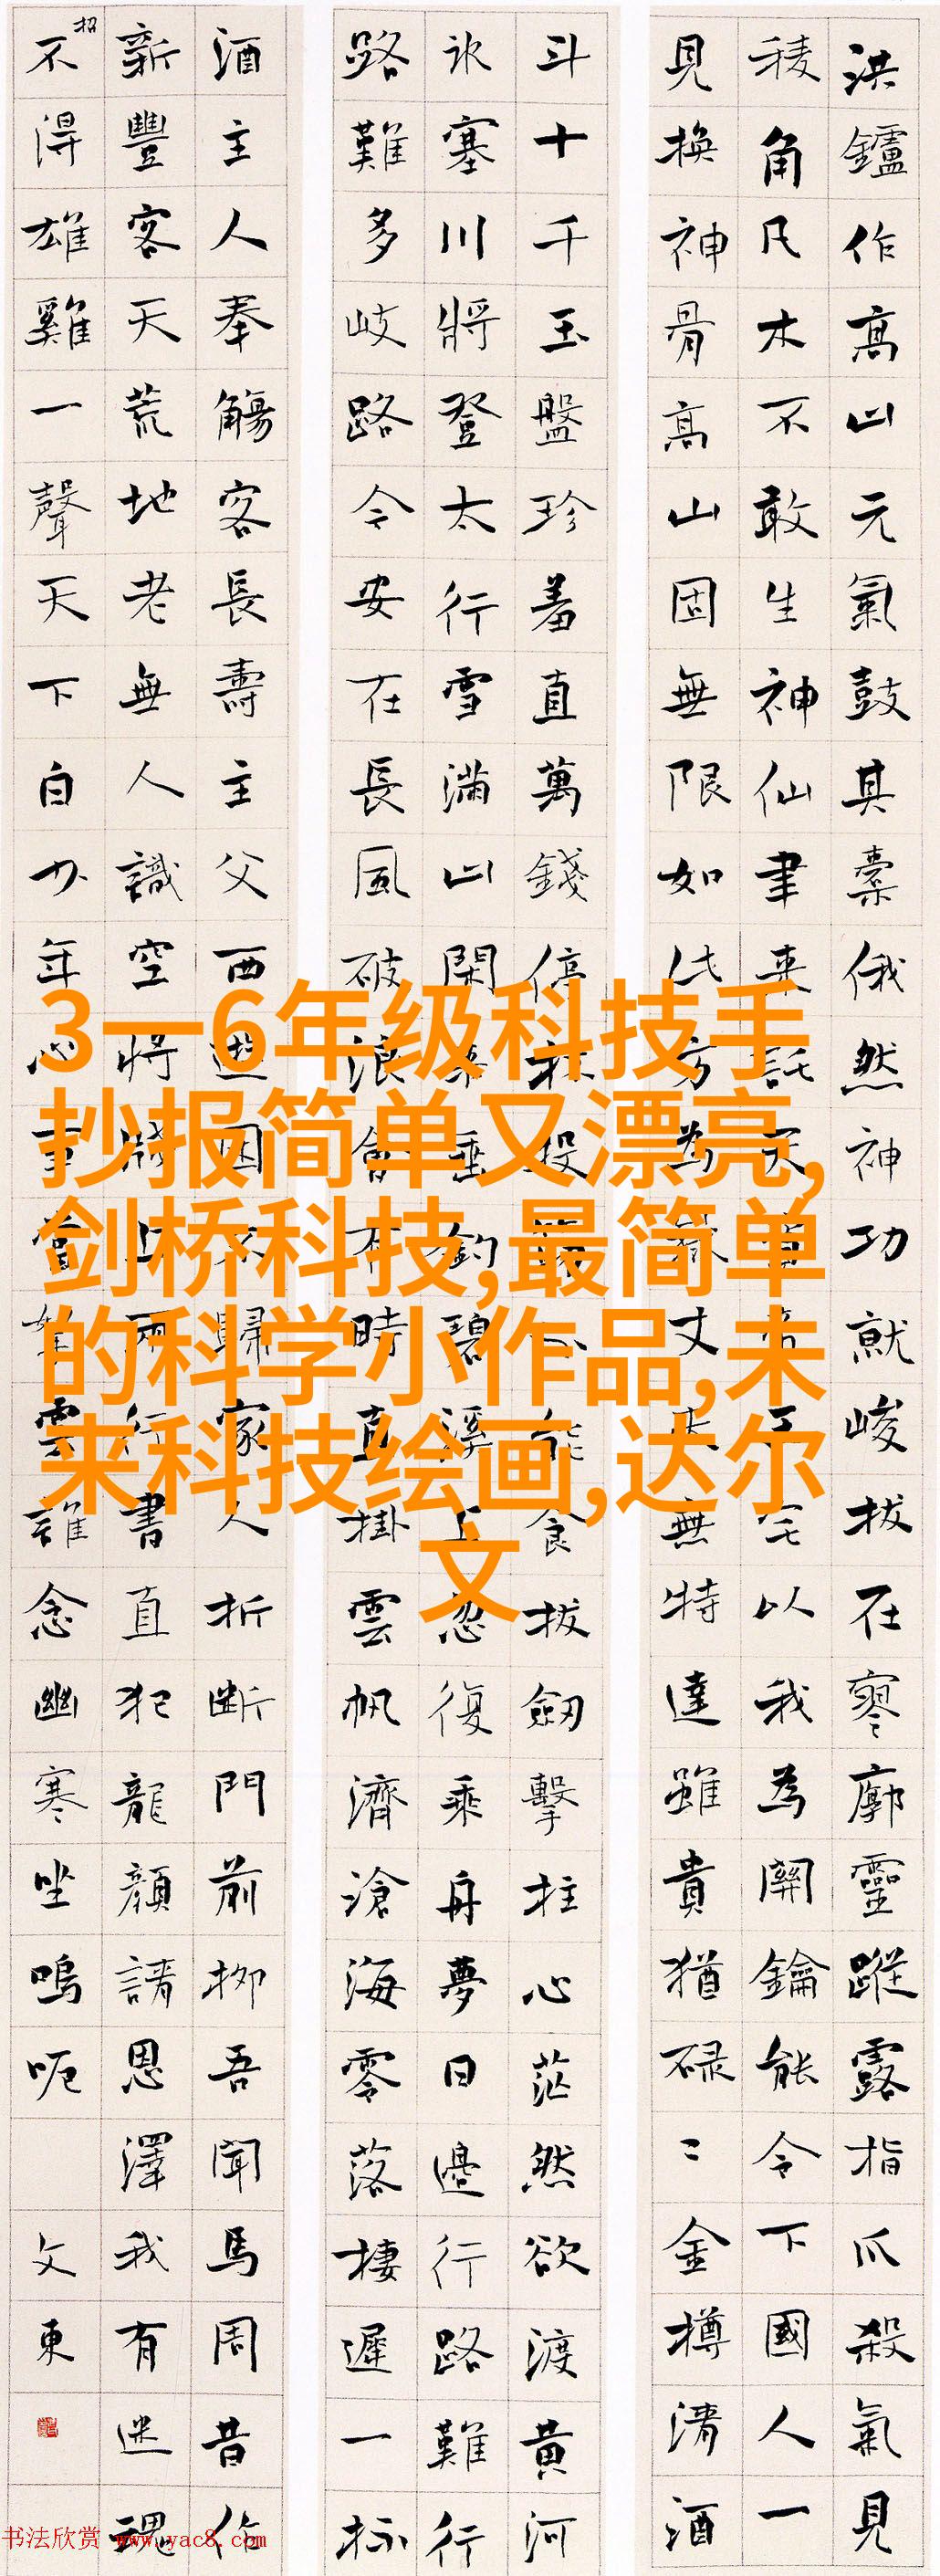 洪鑪作高山元氣鼓其橐俄然神功就峻拔在寥廓靈蹤露指爪殺氣見
稜角凡木不敢生神仙聿来託天帝王宅以我為關鑰能令下國人一
見換神骨高山固無限如此方為嶽丈夫無特達雖貴猶碌々金樽清酒
斗十千玉盤珍羞直萬錢停杯投箸不能食拔劔擊柱心茫然欲渡黄河
冰塞川將登太行雪滿山閑来垂釣碧溪上忽復乘舟夢日邊行路難行
路難多岐路今安在長風破浪會有時直掛雲帆濟滄海零落棲遲一杯
酒主人奉觴客長壽主父西遊困不歸家人折斷門前柳吾聞馬周昔作
新豐客天荒地老無人識空將牋上兩行書直犯龍顔請恩澤我有迷魂
招不得雄雞一聲天下白少年心事當拏雲誰念幽寒坐嗚呃
文東
3一6年级科技手
抄报简单又漂亮,
剑桥科技,最简单
的科学小作品,未
来科技绘画,达尔
文
书法欣赏 www.yac8.com